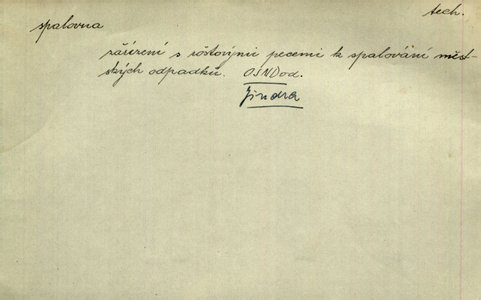 tech.
spalovna
zařízení s roštovými pecemi k spalování měst-
ských odpadků. OSNDod.
Jindra